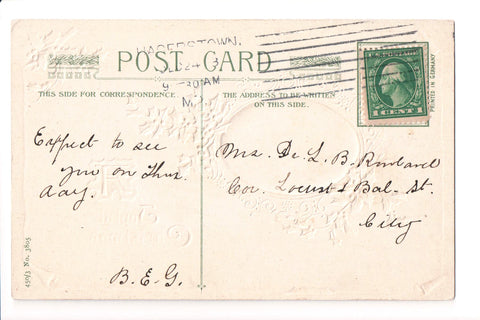 HAGERSTOWN,
POST CARD
THIS SIDE FOR CORRESPONDENCE.
THE ADDRESS TO BE WRITTEN
ON THIS SIDE.
PRINTED IN GERMANY
1 CENT 1
Expect to see
you on Thur.
day.
B.E.G.
Mrs. De. L. B. Rowland
Cor. Locust & Bal- St.
City
450/3 No. 3805